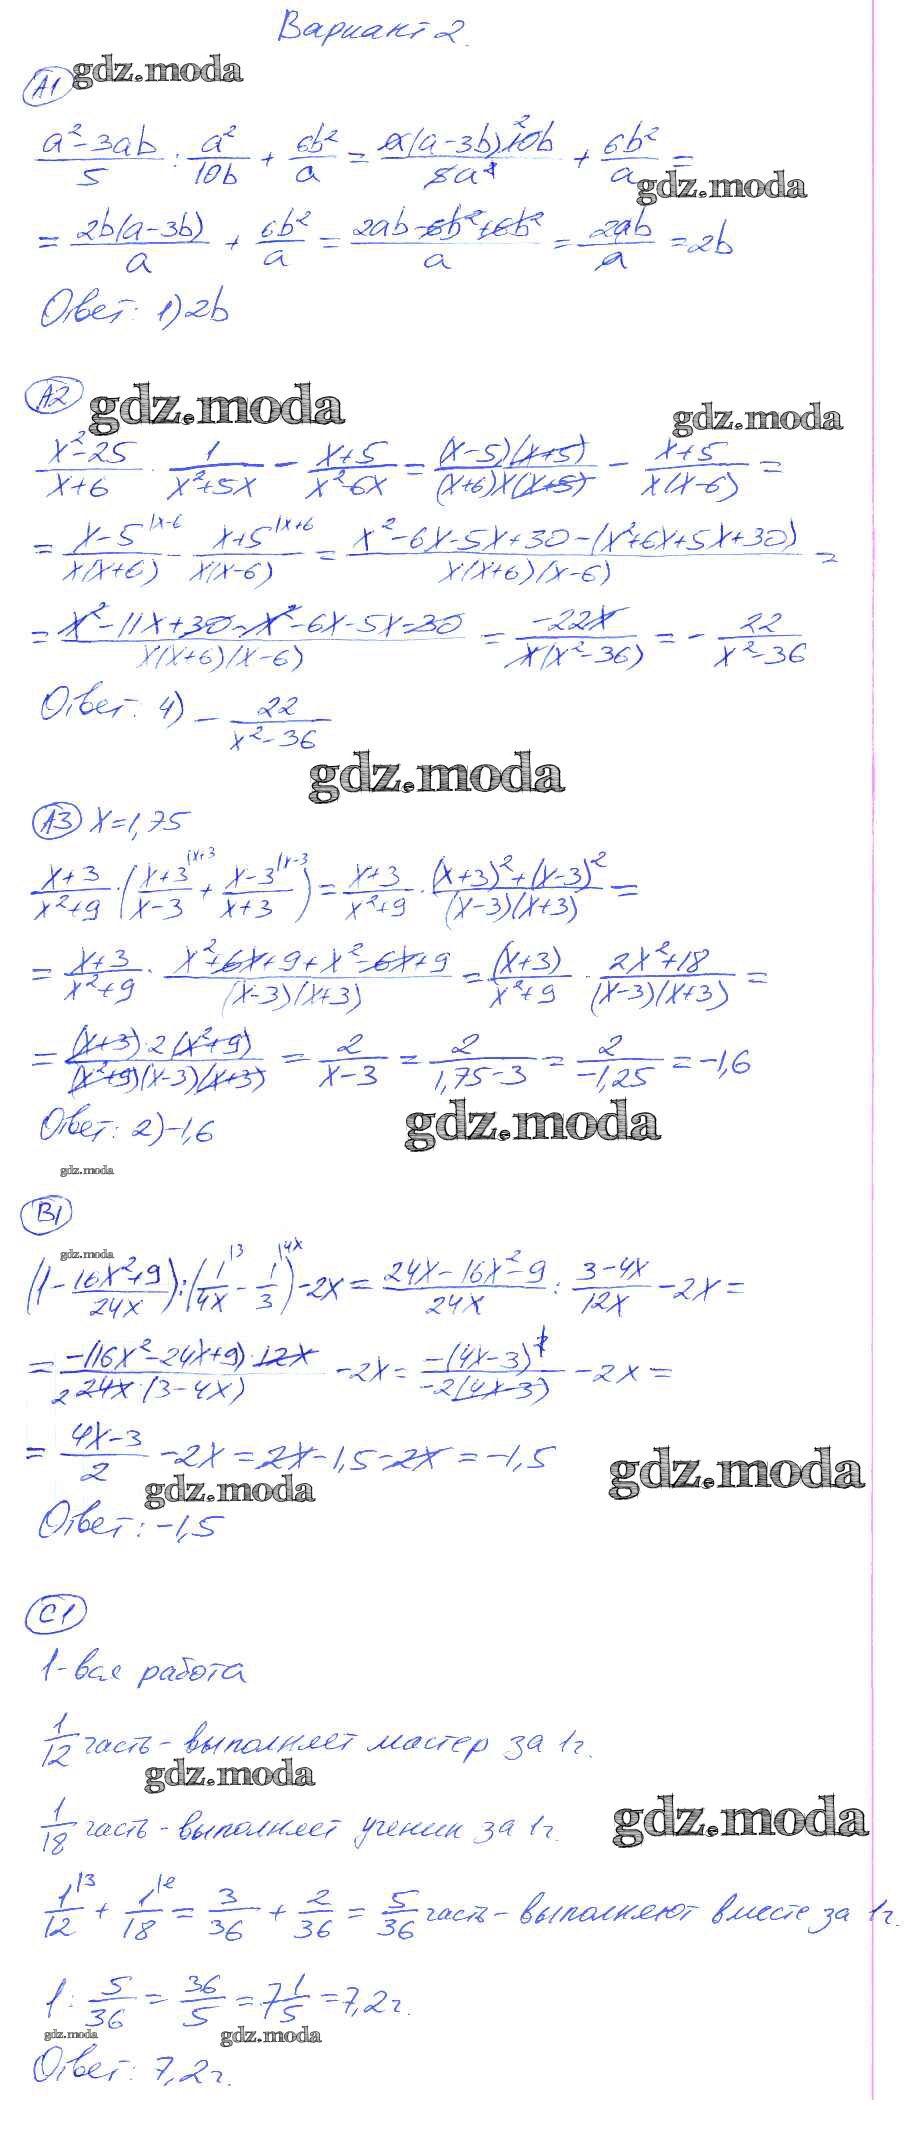 Вариант 2.
А1 gdz.moda
(a²-3ab)/5 : a²/10b + 6b²/a = (a(a-3b)·10b)/(5a²) + 6b²/a =
gdz.moda
= 2b(a-3b)/a + 6b²/a = (2ab-6b²+6b²)/a = 2ab/a = 2b
Ответ: 1) 2b
А2 gdz.moda
gdz.moda
(x²-25)/(x+6) · 1/(x²+5x) - (x+5)/(x²-6x) = ((x-5)(x+5))/((x+6)x(x+5)) - (x+5)/(x(x-6)) =
= (x-5)/(x(x+6)) |x-6 - (x+5)/(x(x-6)) |x+6 = (x²-6x-5x+30-(x²+6x+5x+30))/(x(x+6)(x-6)) =
= (x²-11x+30-x²-6x-5x-30)/(x(x+6)(x-6)) = -22x/(x(x²-36)) = - 22/(x²-36)
Ответ: 4) - 22/(x²-36)
gdz.moda
А3 x=1,75
(x+3)/(x²+9) · ((x+3)/(x-3) |x+3 + (x-3)/(x+3) |x-3) = (x+3)/(x²+9) · ((x+3)²+(x-3)²)/((x-3)(x+3)) =
= (x+3)/(x²+9) · (x²+6x+9+x²-6x+9)/((x-3)(x+3)) = (x+3)/(x²+9) · (2x²+18)/((x-3)(x+3)) =
= ((x+3)·2(x²+9))/((x²+9)(x-3)(x+3)) = 2/(x-3) = 2/(1,75-3) = 2/(-1,25) = -1,6
Ответ: 2) -1,6
gdz.moda
gdz.moda
В1
gdz.moda
(1 - (16x²+9)/24x) : (1/4x |3 - 1/3 |4x) - 2x = (24x-16x²-9)/24x : (3-4x)/12x - 2x =
= (-(16x²-24x+9)·12x)/(24x·(3-4x)) - 2x = (-(4x-3)²)/(-2(4x-3)) - 2x =
= (4x-3)/2 - 2x = 2x-1,5-2x = -1,5
gdz.moda
gdz.moda
Ответ: -1,5
С1
1-вся работа
1/12 часть - выполняет мастер за 1г.
gdz.moda
gdz.moda
1/18 часть - выполняет ученик за 1г.
1/12 |3 + 1/18 |2 = 3/36 + 2/36 = 5/36 часть - выполняют вместе за 1г.
1 : 5/36 = 36/5 = 7 1/5 = 7,2г.
gdz.moda
gdz.moda
Ответ: 7,2г.